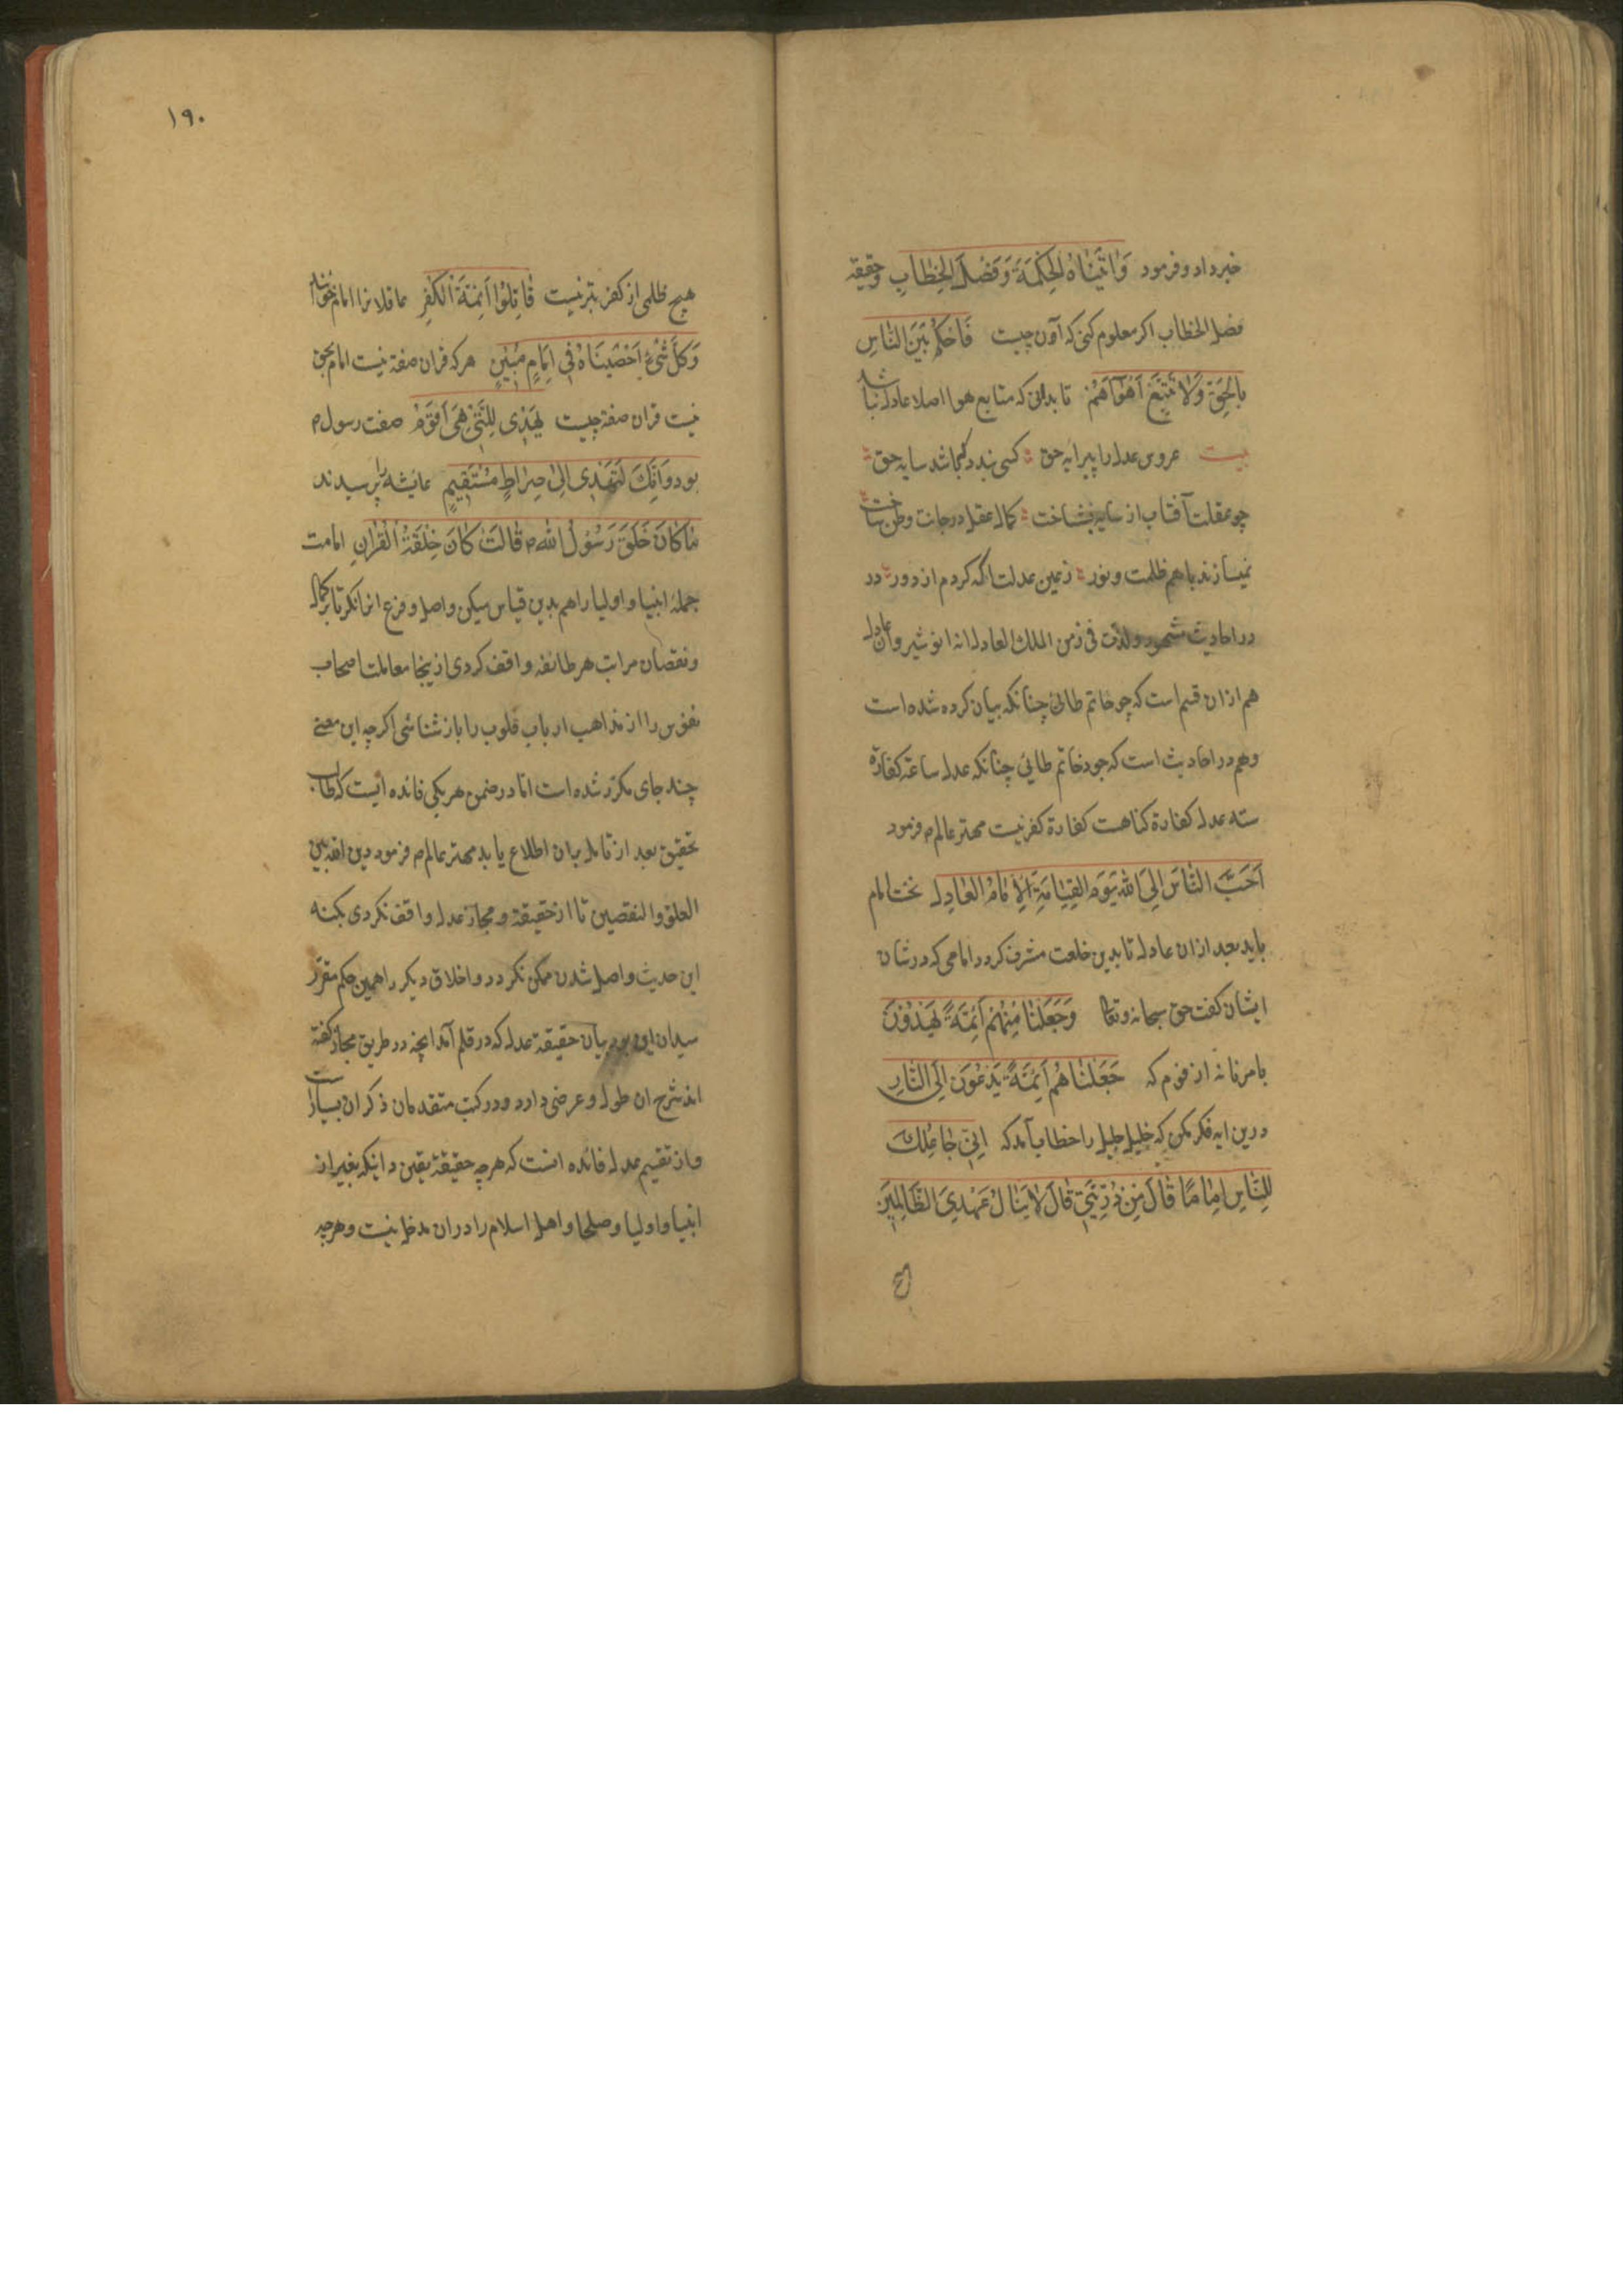 خبر داد و فرمود وَاٰتَيْنَاهُ الْحِكْمَةَ وَفَصْلَ الْخِطَابِ وحقیقه
فصل الخطاب اکر معلوم کنی که آون چیست فَاحْكُمْ بَيْنَ النَّاسِ
بِالْحَقِّ وَلَا تَتَّبِعْ اَهْوَآءَهُمْ تا بدانی که متابع هوا اصلا عادل نباشد
بیت عروس عدل را پیرایه حق کسی بندد کجا شد سایه حق
چو عقلت آفتاب از سایه نشناخت کمال عقل در جانت وطن ساخت
نمیسازند باهم ظلمت و نور زعین عدلت اکه کردم از دور در
در احادیث مشهور ولدت فی زمن الملک العادل انه انوشیروان عادل
هم ازان قسم است که چو خاتم طائی چنانکه بیان کرده شده است
وهم در احادیث است که جود خاتم طایی چنانکه عدل ساعة کفارة
سته عدل کفارة کناهست کفارة کفر نیست مهتر عالم م فرمود
اَحَبَّ النَّاسِ اِلَى اللّٰهِ يَوْمَ الْقِيَامَةِ اَلْاِمَامُ الْعَادِلُ نخست امام
باید بعد ازان عادل تا بدین خلعت مشرف کردد امامی که در شان
ایشان کفت حق سبحانه وتعا وَجَعَلْنَا مِنْهُمْ اَئِمَّةً يَهْدُوْنَ
بامرنا نه از قوم که جَعَلْنَاهُمْ اَئِمَّةً يَدْعُوْنَ اِلَى النَّارِ
درین ایه فکر کن که خلیل جلیل را خطاب آمد که اِنِّي جَاعِلُكَ
لِلنَّاسِ اِمَامًا قَالَ مِنْ ذُرِّيَّتِي قَالَ لَا يَنَالُ عَهْدِيَ الظَّالِمِيْنَ
هیچ
۱۹۰
هیچ ظلمی از کفر بتر نیست قَاتِلُوْا اَئِمَّةَ الْكُفْرِ عاقلانرا امام حق
وَكُلَّ شَيْءٍ اَحْصَيْنَاهُ فِي اِمَامٍ مُبِيْنٍ هرکه قران صفة نیست امام بحق
نیست قران صفة چیست يَهْدِي لِلَّتِي هِيَ اَقْوَمُ صفت رسول م
بود وَاِنَّكَ لَتَهْدِي اِلٰى صِرَاطٍ مُسْتَقِيْمٍ عایشه را پرسیدند
مَا كَانَ خَلَقَ رَسُوْلُ اللّٰهِ م قَالَتْ كَانَ خِلَقَةُ الْقُرْاٰنِ امامت
جملهٔ انبیا و اولیا را هم بدین قیاس میکن و اصل و فرع انرا نکر تا بر کمال
و نقصان مراتب هر طائفه واقف کردی ازینجا معاملت اصحاب
نفوس را از مذاهب ارباب قلوب را باز شناسی اکرچه این معنی
چند جای مکرر شده است اما در ضمن هر یکی فائده ایست که طالب
تحقیق بعد از تامل بران اطلاع یابد مهتر عالم م فرمود دین الله بین
الغلو والتقصیر تا از حقیقة و مجاز عدل واقف نکردی بکنه
این حدیث واصل شدن ممکن نکردد و اخلاق دیکر را همین حکم مقرر
میدان این بود بیان حقیقة عدل که در قلم آمد انچه در طریق مجاز کفته
اند شرح ان طول و عرضی دارد و در کتب متقدمان ذکر ان بسیار است
و از تقسیم عدل فائده انست که هرچه حقیقة یقین دانیکه بغیر از
انبیا و اولیا و صلحا و اهل اسلام را دران مدخل نیست و هرچه